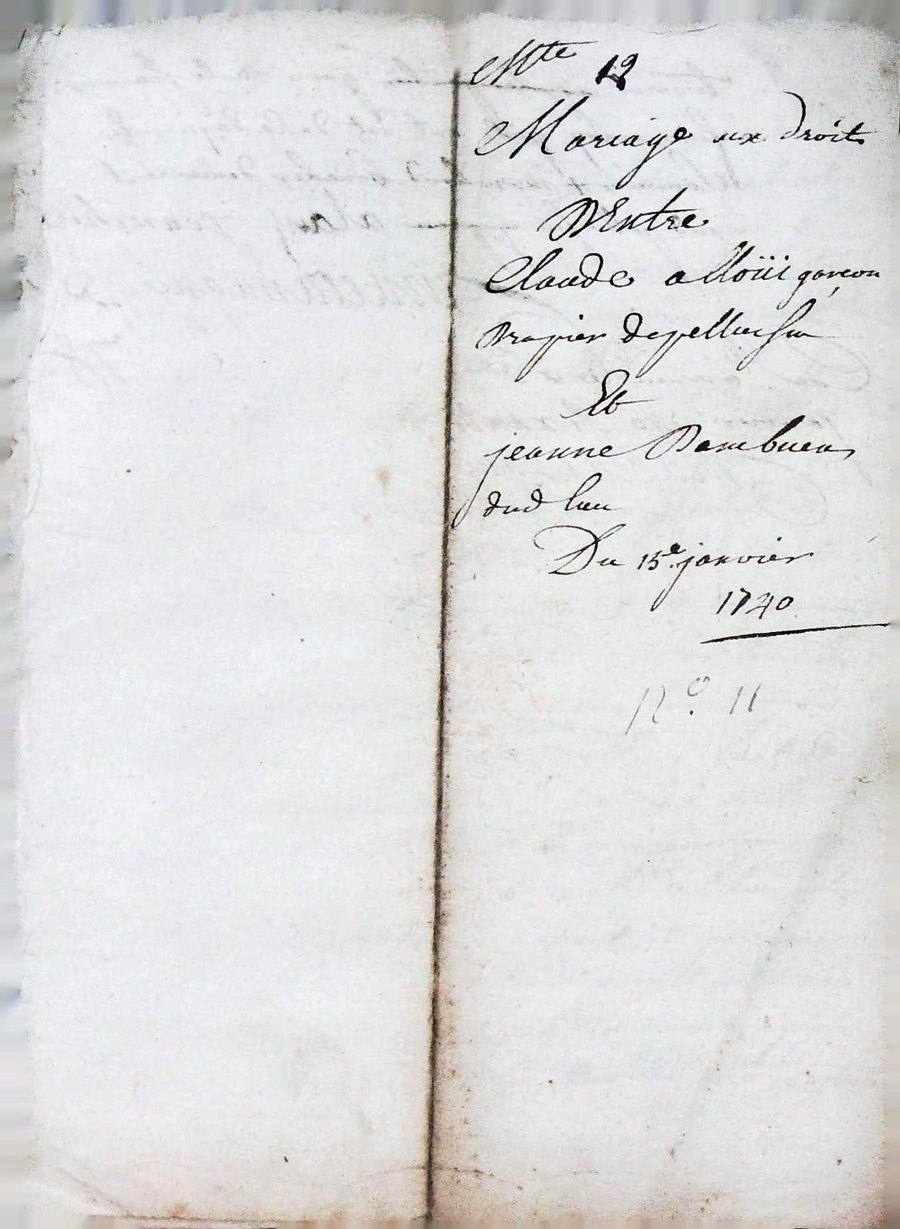 Mte 12
Mariage aux droits
D'Entre
Claude alloüi garçon
Drapier de pellussin
Et
jeanne Dambuen
dud lieu
Du 15e janvier
1740
No. 11